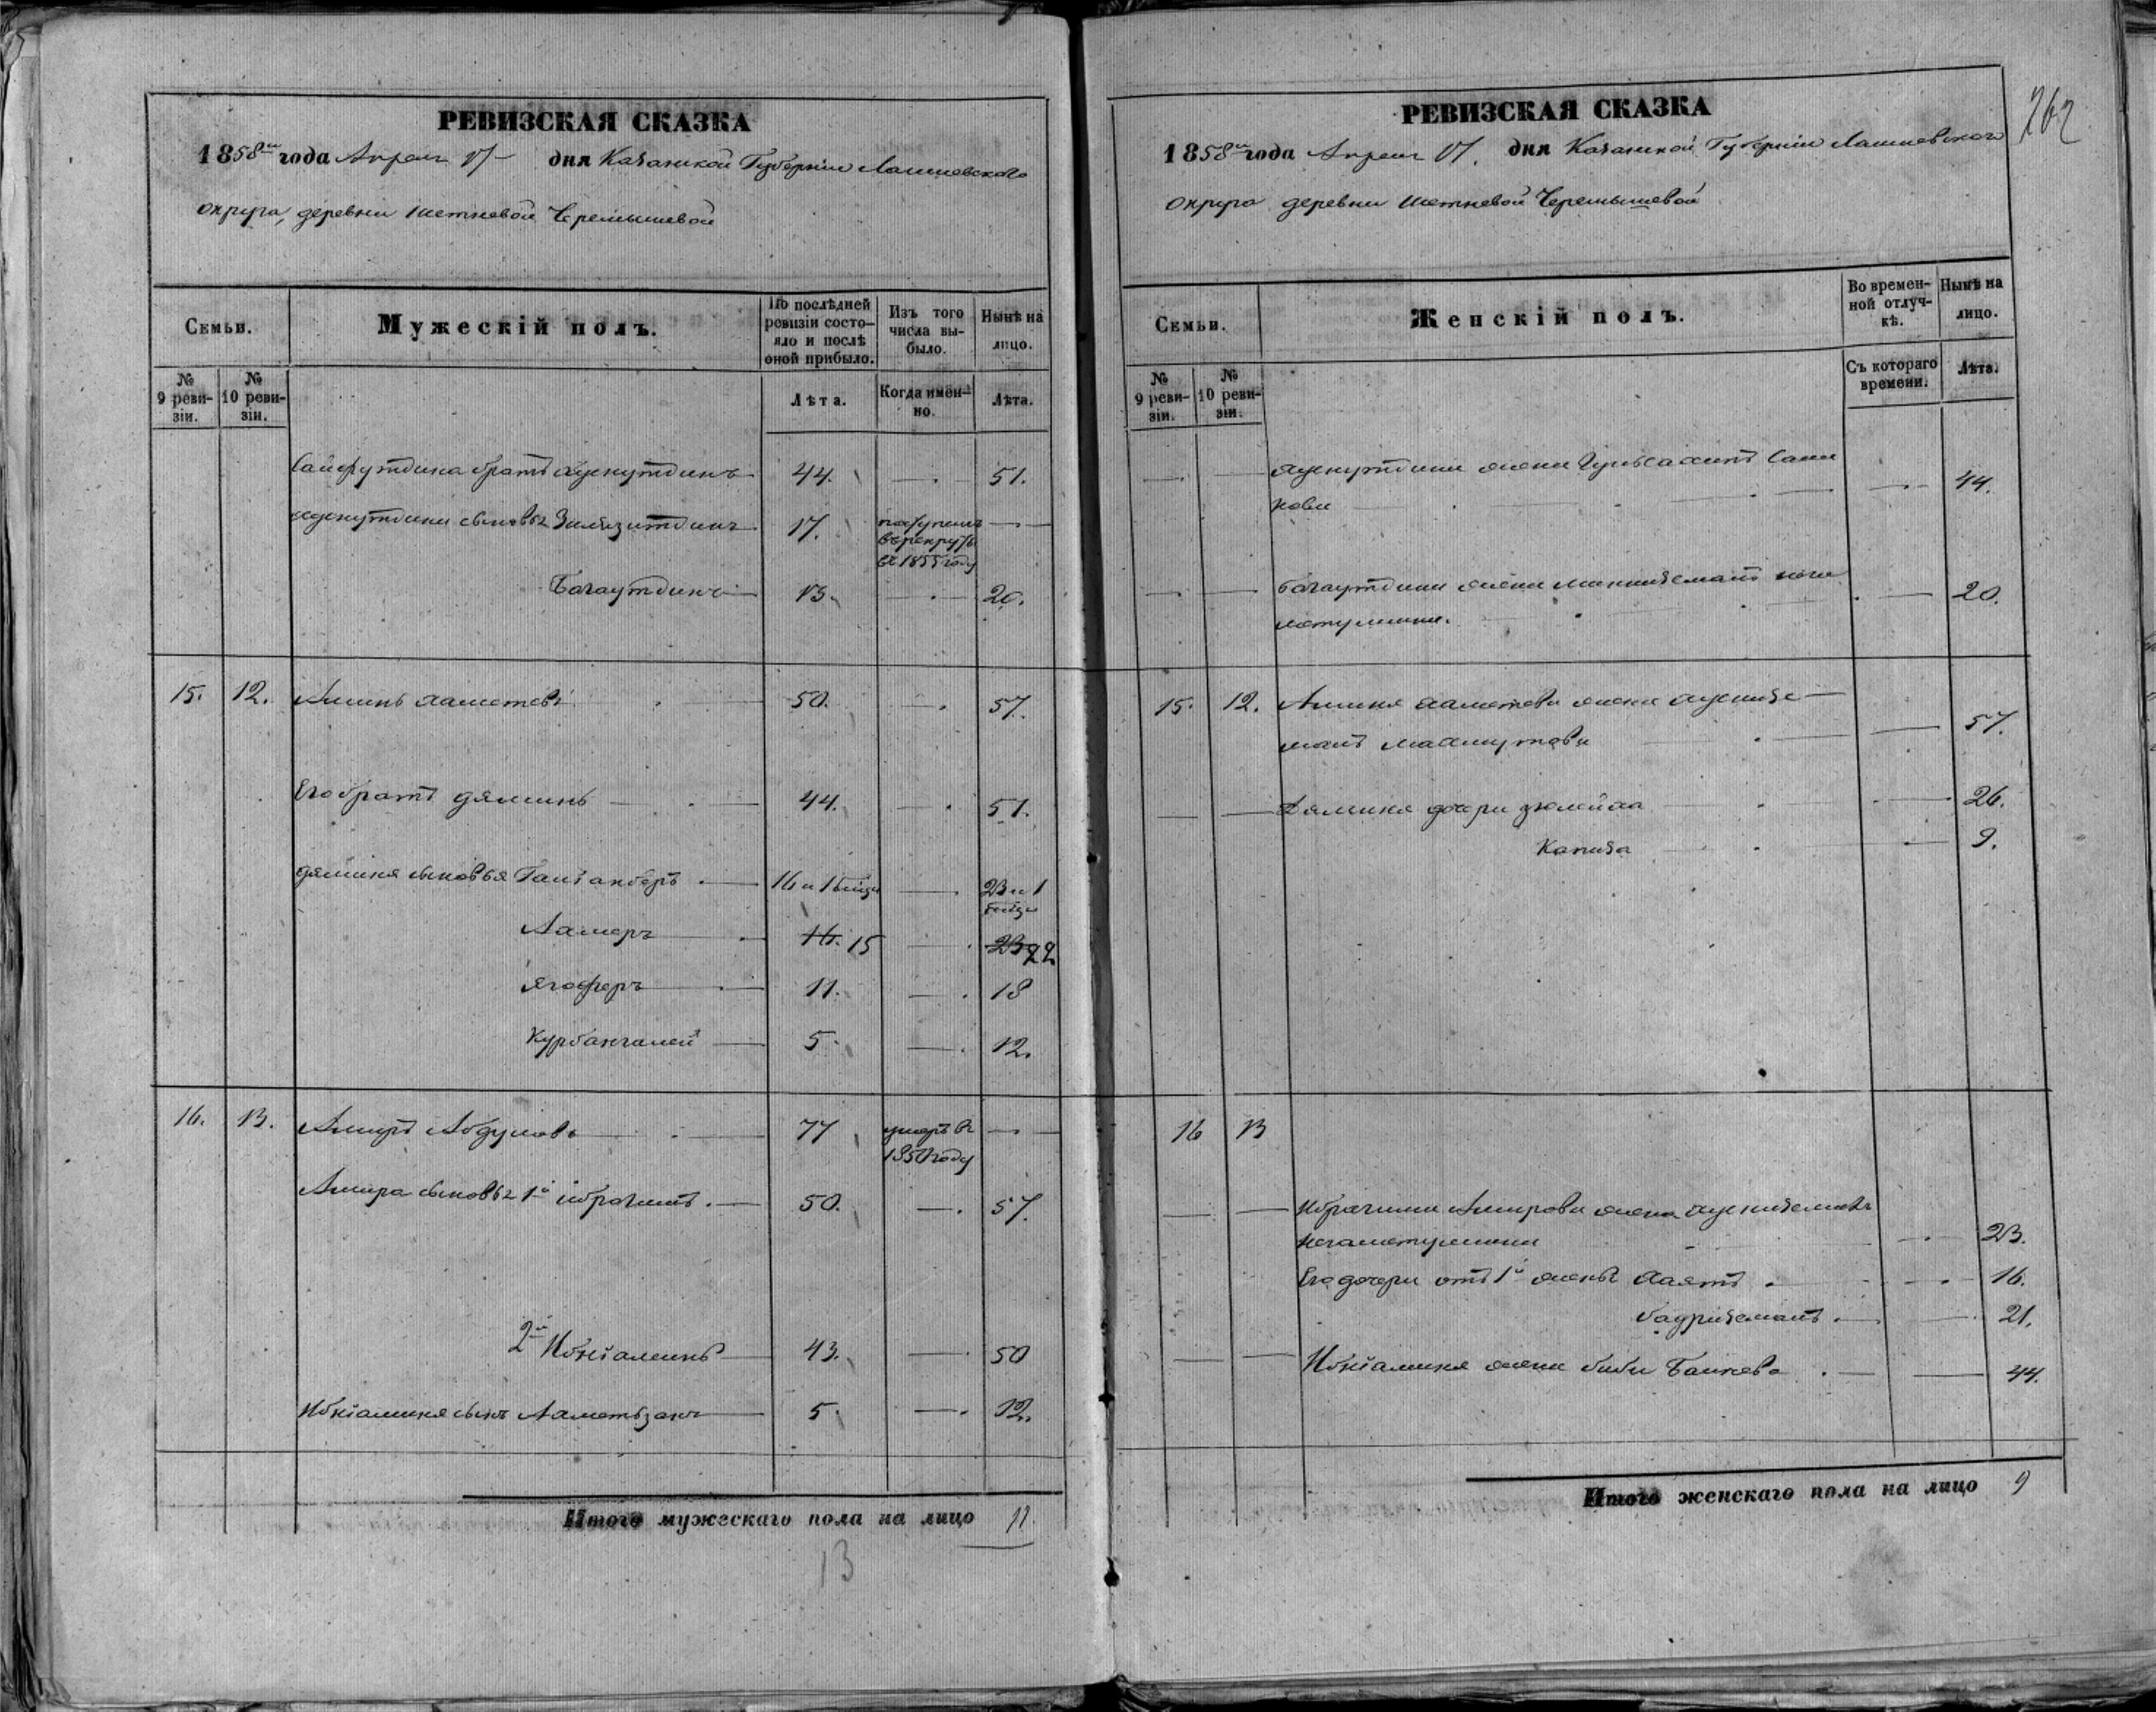 РЕВИЗСКАЯ СКАЗКА
1858го года Апреля 17 дня Казанской Губернии Лаишевскаго
округа, деревни Шетневой Черемышевой
Семьи.
Мужескій полъ.
По послѣдней ревизіи состояло и послѣ оной прибыло.
Изъ того числа выбыло.
Нынѣ на лицо.
№ 9 ревизіи.
№ 10 ревизіи.
Лѣта.
Когда именно.
Лѣта.
Сайфутдина братъ 44. 51.
сыновья 17. поступилъ въ рекруты въ 1855 году
Багаутдинъ 13. 20.
15. 12. Аминь Хаметевъ 50. 57.
Его братъ Дяминь 44. 51.
Дяминя сыновья 16 и 1 23 и 1
Хамеръ 16. 15 23 22
Ягоферъ 11. 18
Курбангалей 5. 12.
16. 13. Амиръ Абдуловъ 77 умеръ въ 1850 году
Амира сыновья 1й Ибрагимъ 50. 57.
2й Ибніаминъ 43. 50
Ибніаминя сынъ Ахметьзянъ 5. 12.
Итого мужескаго пола на лицо 11.
13
262
РЕВИЗСКАЯ СКАЗКА
1858го года Апреля 17. дня Казанской Губернии Лаишевскаго
округа деревни Шетневой Черемышевой
Семьи.
Женскій полъ.
Во временной отлучкѣ.
Нынѣ на лицо.
№ 9 ревизіи.
№ 10 ревизіи.
Съ котораго времени.
Лѣта.
жена 44.
Багаутдина жена 20.
15. 12. Аминя Хаметева жена
Махмутова 57.
Дяминя дочери Зюлейха 26.
Капиза 9.
16 13
Ибрагима Амирова жена
23.
Его дочери отъ 1й жены Хаятъ 16.
Бадризямалъ 21.
Ибніаминя жена Биби Баишева 44.
Итого женскаго пола на лицо 9